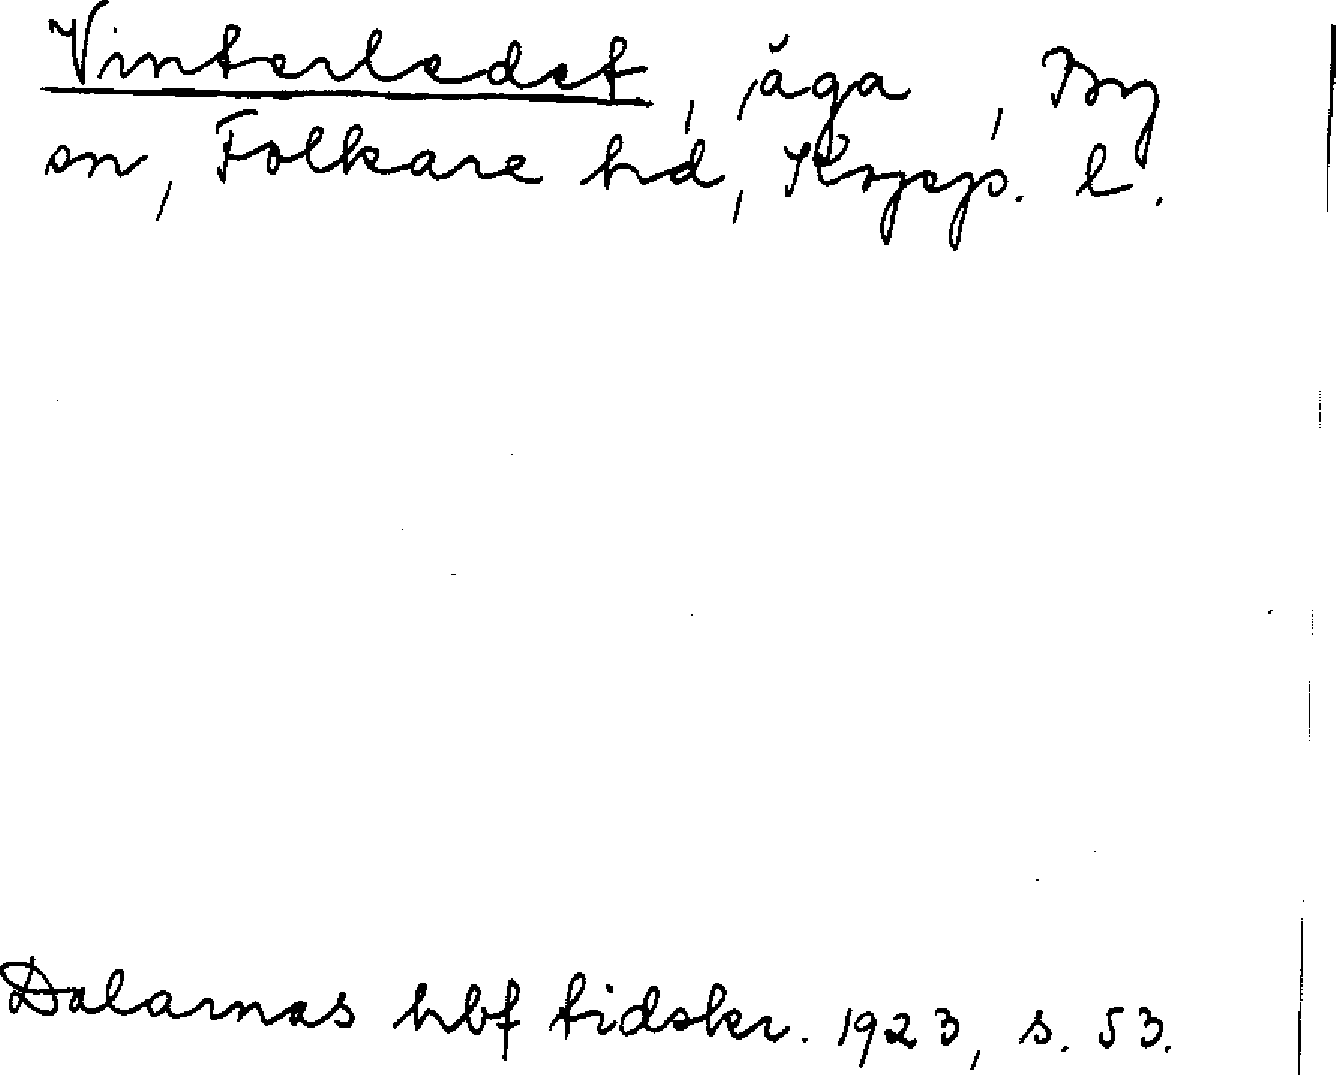 Vinterledet, äga, By
sn, Folkare hd, Kopp. l.
Dalarnas hbf tidskr. 1923, s. 53.